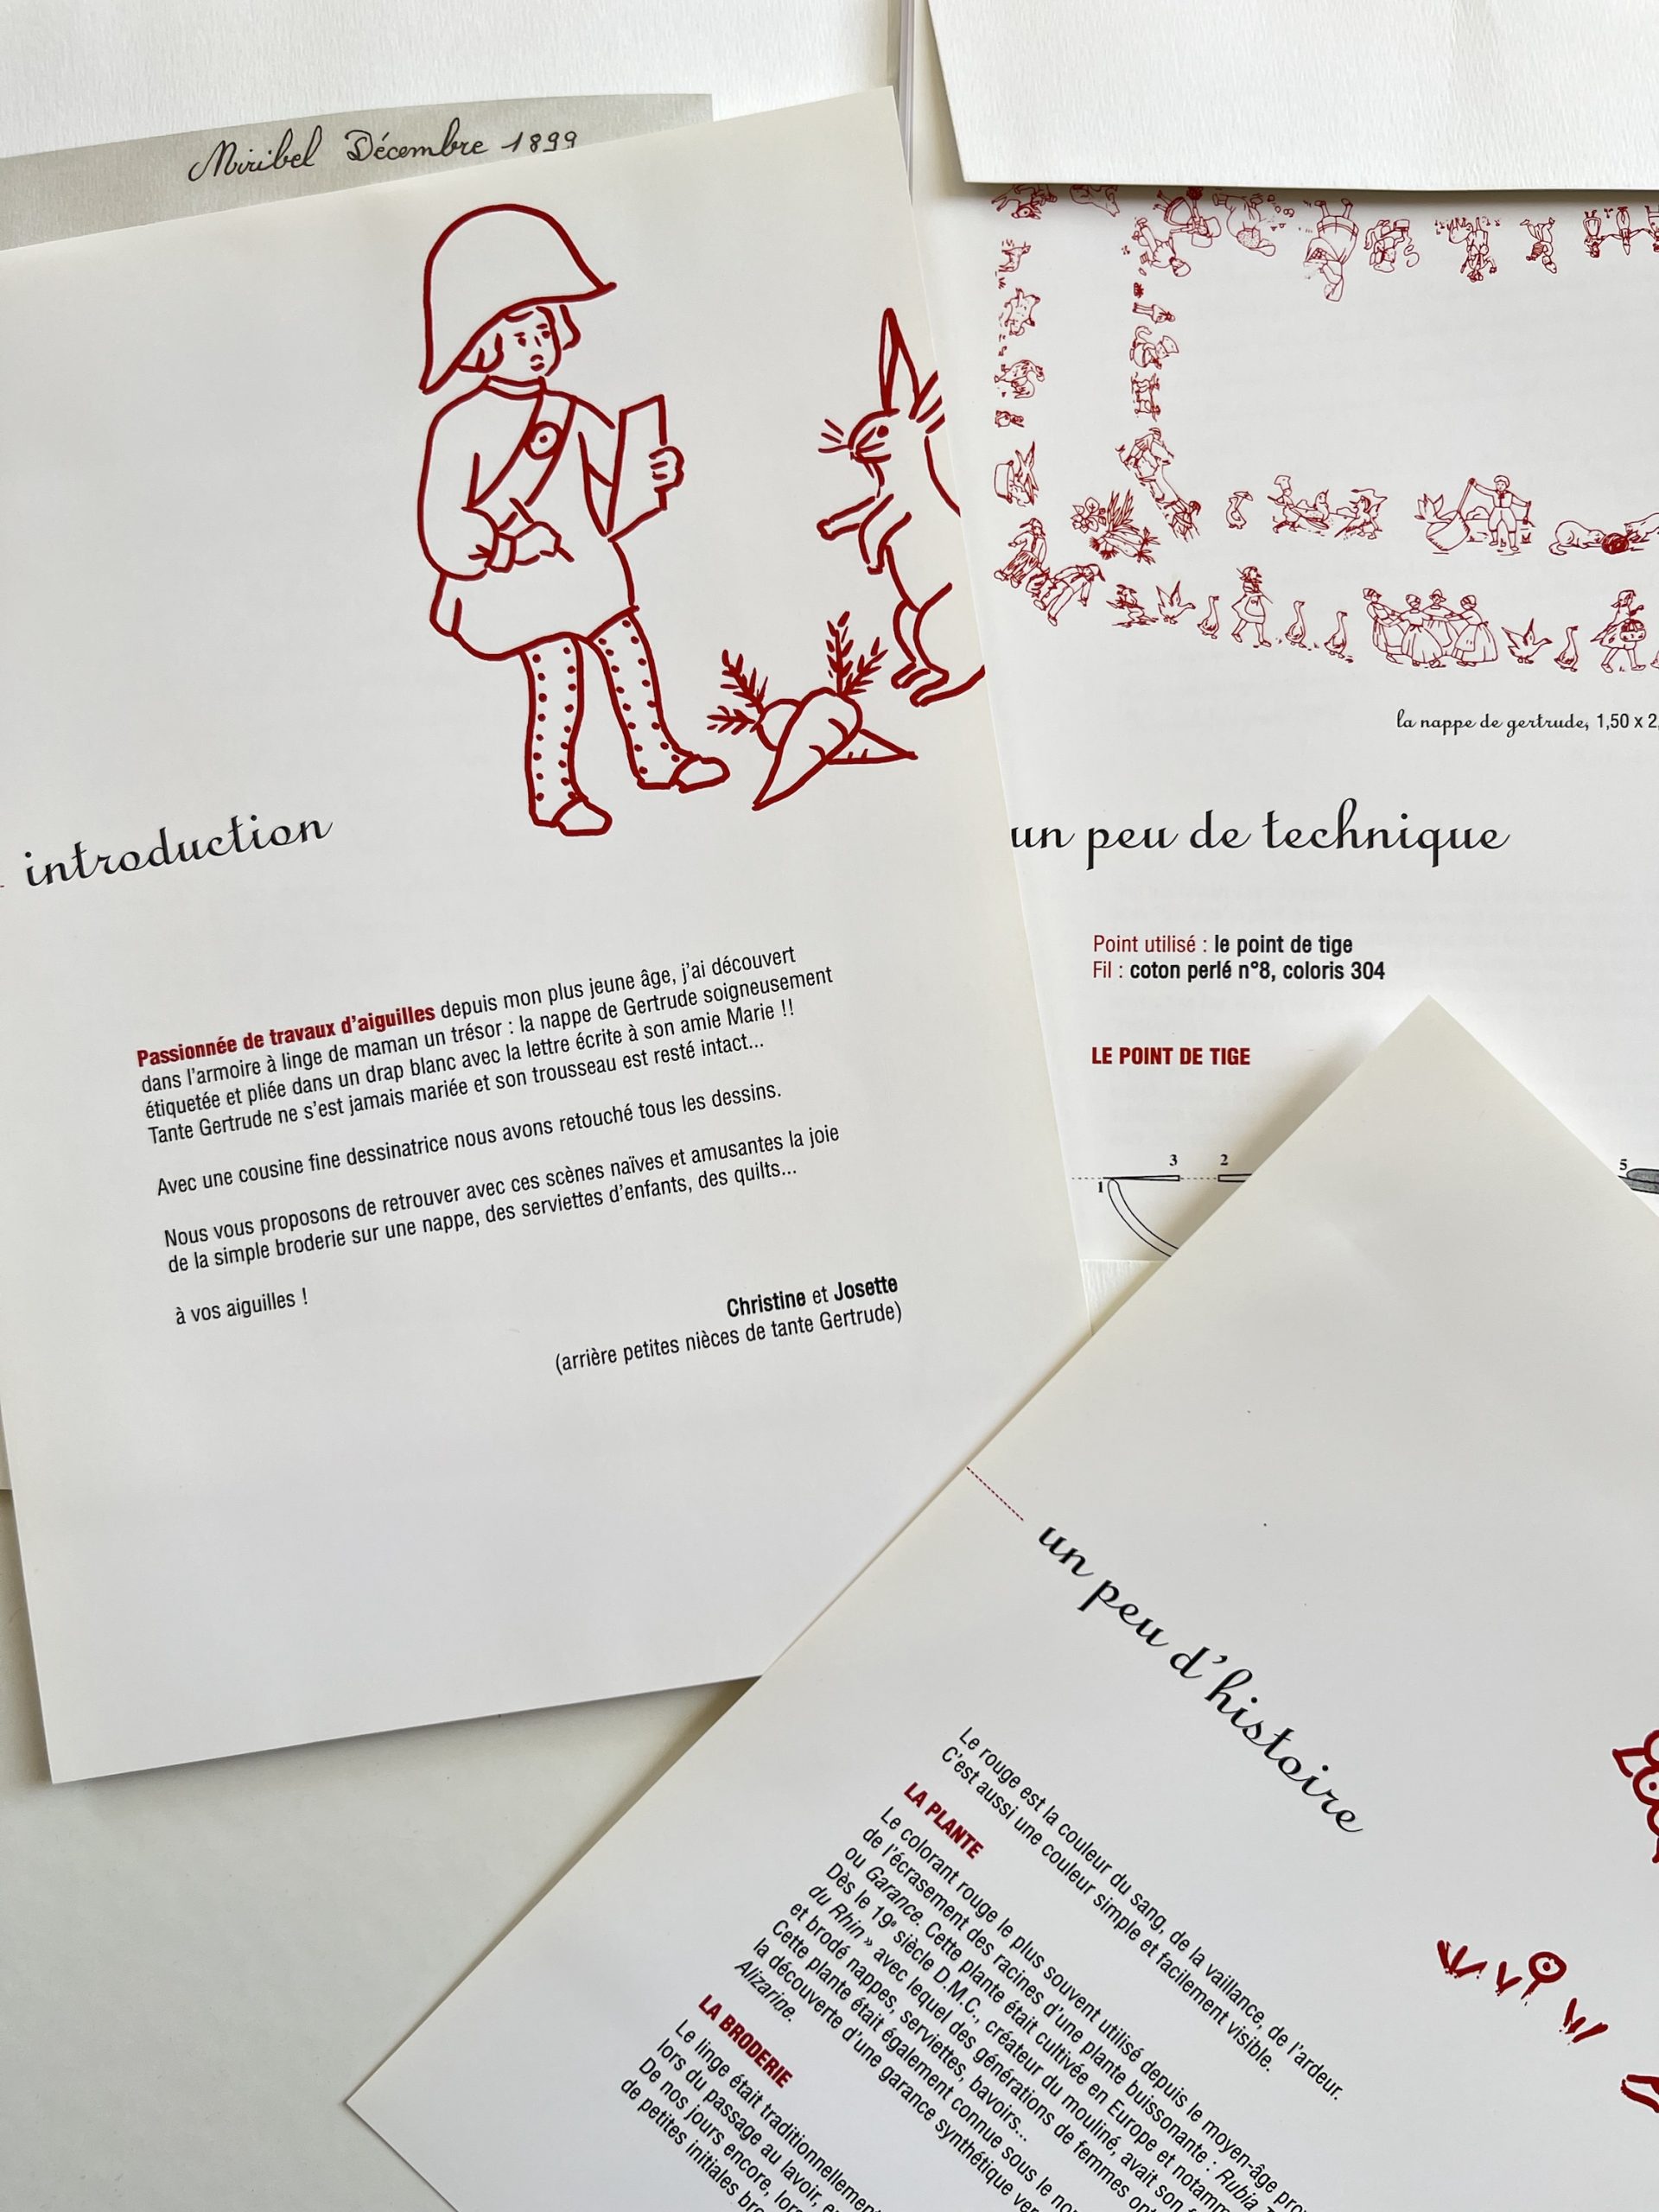 Miribel Décembre 1899
introduction
Passionnée de travaux d'aiguilles depuis mon plus jeune âge, j'ai découvert
dans l'armoire à linge de maman un trésor : la nappe de Gertrude soigneusement
étiquetée et pliée dans un drap blanc avec la lettre écrite à son amie Marie !!
Tante Gertrude ne s'est jamais mariée et son trousseau est resté intact...
Avec une cousine fine dessinatrice nous avons retouché tous les dessins.
Nous vous proposons de retrouver avec ces scènes naïves et amusantes la joie
de la simple broderie sur une nappe, des serviettes d'enfants, des quilts...
à vos aiguilles !
Christine et Josette
(arrière petites nièces de tante Gertrude)
la nappe de gertrude, 1,50 x 2,
un peu de technique
Point utilisé : le point de tige
Fil : coton perlé n°8, coloris 304
LE POINT DE TIGE
3 2
1
5
un peu d'histoire
Le rouge est la couleur du sang, de la vaillance, de l'ardeur.
C'est aussi une couleur simple et facilement visible.
LA PLANTE
Le colorant rouge le plus souvent utilisé depuis le moyen-âge
de l'écrasement des racines d'une plante buissonante : Rubia
ou Garance. Cette plante était cultivée en Europe et
Dès le 19e siècle D.M.C., créateur du mouliné, avait son
du Rhin » avec lequel des générations de femmes
et brodé nappes, serviettes, bavoirs...
Cette plante était également connue sous le
la découverte d'une garance synthétique
Alizarine.
LA BRODERIE
Le linge était traditionnellement
lors du passage au lavoir,
De nos jours encore,
de petites initiales